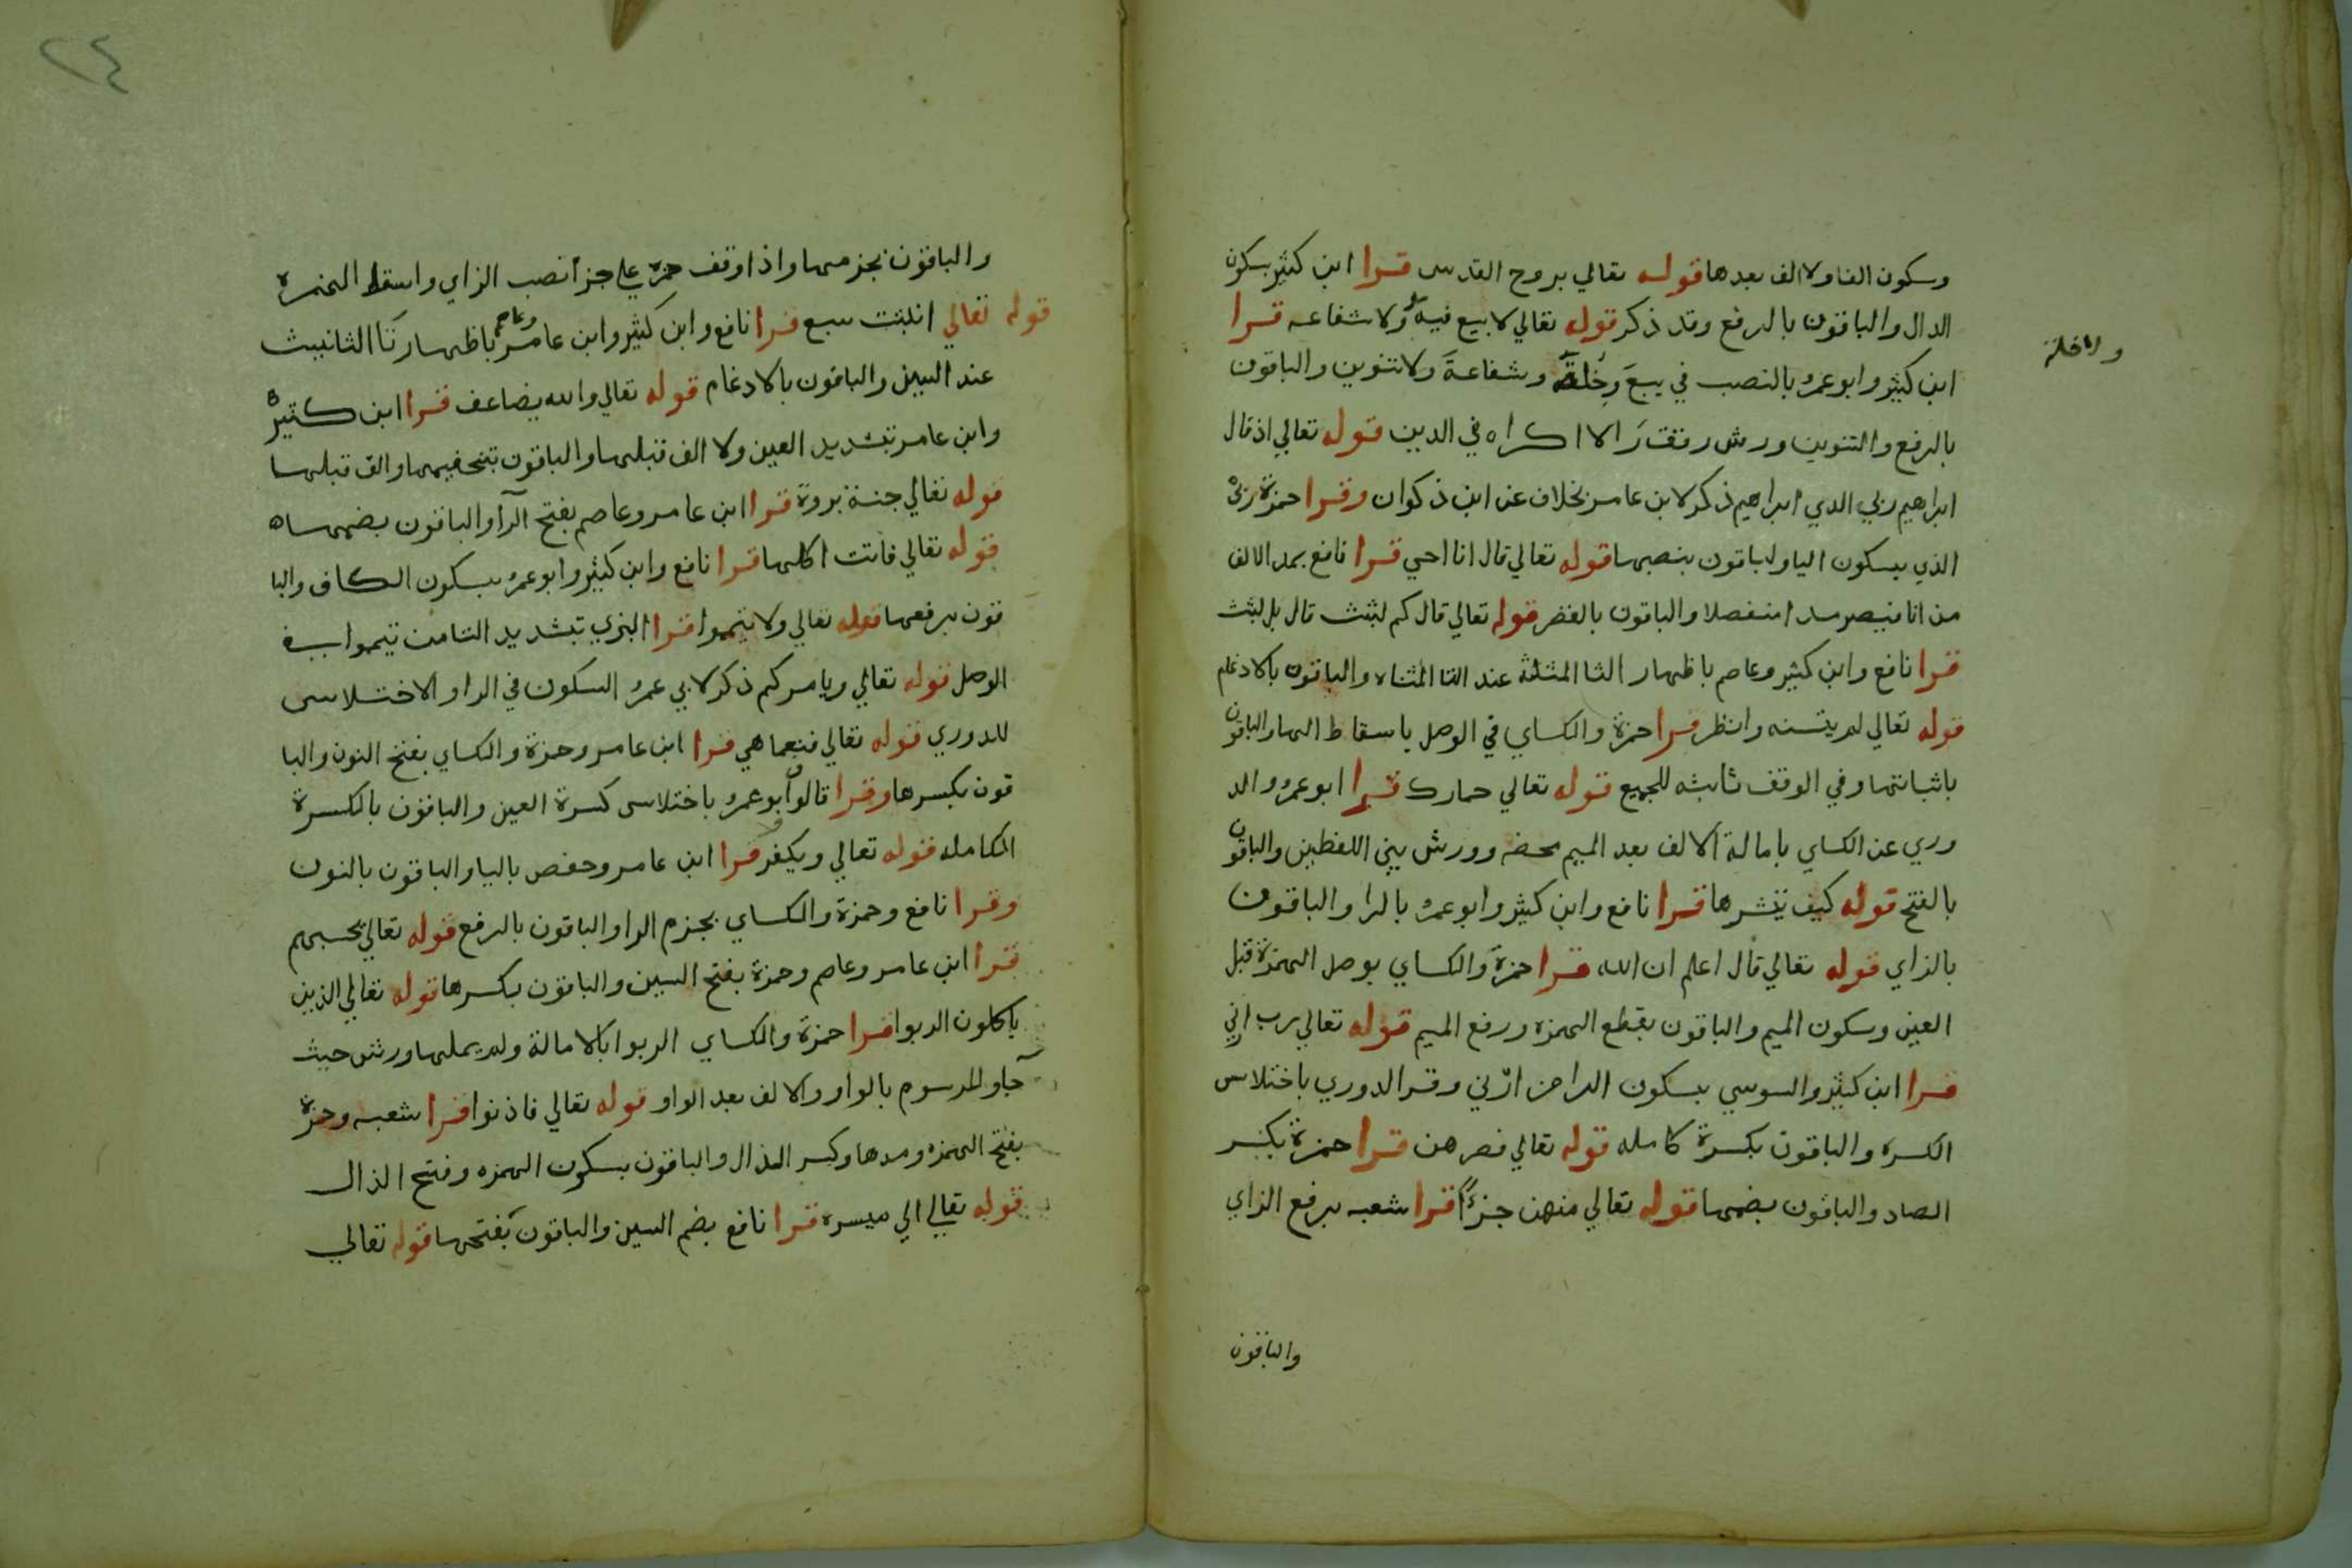 وسكون الفا ولا الف بعدها قوله تعالي بروح القدس قرا ابن كثير بسكون
الدال والباقون بالرفع وقد ذكر قوله تعالي لا بيع فيه ولا شفاعه قرا
ولا خلة
ابن كثير وابو عمرو بالنصب في بيعَ وخلةَ وشفاعةَ ولا تنوين والباقون
بالرفع والتنوين وورش رقق را لا اكراه في الدين قوله تعالي اذ قال
ابراهيم ربي الدي ابراهيم ذكر لابن عامر بخلاف عن ابن ذكوان وقرا حمزة ربي
الذي بسكون اليا ولباقون بنصبها قوله تعالي قال انا احي قرا نافع بمد الالف
من انا فيصير مدا منفصلا والباقون بالقصر قوله تعالي قال كم لبثت قال بل لبثت
قرا نافع وابن كثير وعاصم باظهار الثا المثلثة عند التا المثناه والباقون بالادغام
قوله تعالي لم يتسنه وانظر قرا حمزة والكساي في الوصل باسقاط الها والباقون
باثباتها وفي الوقف ثابته للجميع قوله تعالي حمارك قرا ابو عمرو والد
وري عن الكساي بامالة الالف بعد الميم محضه وورش بين اللفظين والباقون
بالفتح قوله كيف ننشرها قرا نافع وابن كثير وابو عمرو بالرا والباقون
بالزاي قوله تعالي قال اعلم ان الله قرا حمزة والكساي بوصل الهمزة قبل
العين وسكون الميم والباقون بقطع الهمزه ورفع الميم قوله تعالي رب ارني
قرا ابن كثير والسوسي بسكون الرا من ارْني وقرا الدوري باختلاس
الكسره والباقون بكسرة كامله قوله تعالي فصرهن قرا حمزة بكسر
الصاد والباقون بضمها قوله تعالي منهن جزءًا قرا شعبه برفع الزاي
والباقون
٢٤
والباقون بجزمها واذا وقف حمزه علي جزأ نصب الزاي واسقط الهمزه
قوله تعالي انبتت سبع قرا نافع وابن كثير وابن عامر وعاصم باظهار تا التانيث
عند السين والباقون بالادغام قوله تعالي والله يضاعف قرا ابن كثير
وابن عامر بتشديد العين ولا الف قبلها والباقون بتخفيفها والف قبلها
قوله تعالي جنة بروة قرا ابن عامر وعاصم بفتح الرا والباقون بضمها
قوله تعالي فاتت اكلها قرا نافع وابن كثير وابو عمرو بسكون الكاف والبا
قون برفعها قوله تعالي ولا تيمموا قرا البزي بتشديد التا من تيمموا في
الوصل قوله تعالي ويامركم ذكر لابي عمرو السكون في الرا والاختلاس
للدوري قوله تعالي فنعما هي قرا ابن عامر وحمزة والكساي بفتح النون والبا
قون بكسرها وقرا قالون وابو عمرو باختلاس كسرة العين والباقون بالكسرة
الكامله قوله تعالي ويكفر قرا ابن عامر وحفص باليا والباقون بالنون
وقرا نافع وحمزة والكساي بجزم الرا والباقون بالرفع قوله تعالي يحسبهم
قرا ابن عامر وعاصم وحمزة بفتح السين والباقون بكسرها قوله تعالي الذين
ياكلون الربوا قرا حمزة والكساي الربوا بالامالة ولم يملها ورش حيث
جا والمرسوم بالواو والالف بعد الواو قوله تعالي فاذنوا قرا شعبه وحمزة
بفتح الهمزه ومدها وكسر الذال والباقون بسكون الهمزه وفتح الذال
قوله تعالي الي ميسره قرا نافع بضم السين والباقون بفتحها قوله تعالي